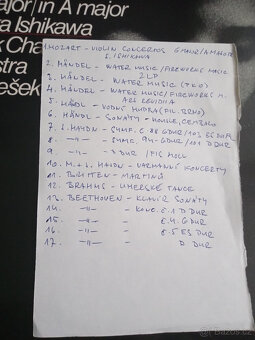 ajor/in A major
ra Ishikawa
k Cha
stra
ešek
1. MOZART - VIOLIN CONCERTOS G MAJOR/A MAJOR
S. ISHIKAWA
2. HÄNDEL - WATER MUSIC/FIREWORKS MUSIC
2LP
3. HÄNDEL - WATER MUSIC (PKO)
4. HÄNDEL - WATER MUSIC/FIREWORKS M.
ARS REDIVIVA
5. HÄNDL - VODNÍ HUDBA (FIL. BRNO)
6. HÄNDEL - SONÁTY - HOUSLE, CEMBALO
7. J. HAYDN - SYMF. C 88 G DUR/103 ES DUR
8. -"- - SYMF. 94 G DUR/101 D DUR
9. -"- - DUR/FIS MOLL
10. M. + J. HAYDN - VARHANNÍ KONCERTY
11. BRITTEN - MARTINŮ
12. BRAHMS - UHERSKÉ TANCE
13. BEETHOVEN - KLAVÍR SONÁTY
14. -"- - KONC. Č. 1 D DUR
15. -"- Č. 4 G DUR
16. -"- Č. 5 ES DUR
17. -"- D DUR